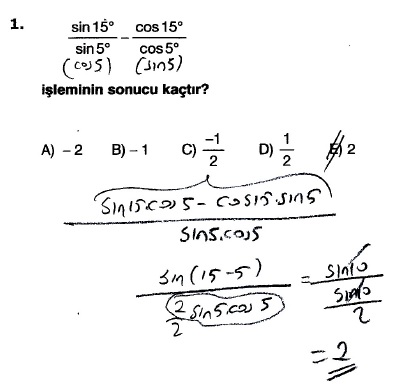 1. sin 15° / sin 5° − cos 15° / cos 5°
(cos5) (sin5)
işleminin sonucu kaçtır?
A) − 2 B) − 1 C) −1/2 D) 1/2 E) 2
sin15.cos5 − cos15.sin5 / sin5.cos5
sin(15-5) / 2/2 sin5.cos5 = sin10 / sin10/2
= 2